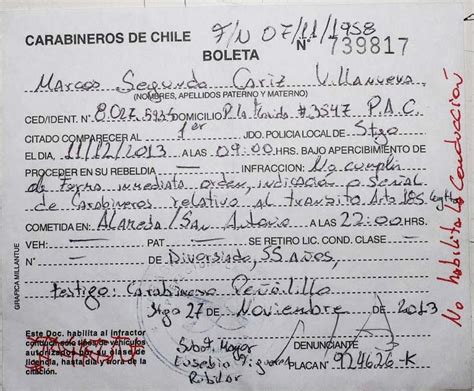 CARABINEROS DE CHILE F/N 07/11/1958
BOLETA N° 739817
Marcos Segundo Cariz Villanueva
(NOMBRES, APELLIDOS PATERNO Y MATERNO)
CED/IDENT. N° 8.027. DOMICILIO # 3547 P.A.C.
CITADO COMPARECER AL 1er JDO. POLICIA LOCAL DE Stgo
EL DIA, 11/12/2013 A LAS 09:00 HRS. BAJO APERCIBIMIENTO DE
PROCEDER EN SU REBELDIA — INFRACCION: No cumplir
de forma inmediata orden, indicación o señal
de Carabineros relativo al transito Arto
COMETIDA EN: Alameda/San Antonio A LAS 22:00 HRS.
VEH: — PAT — SE RETIRO LIC. COND. CLASE —
N° — DE Diversiado, 55 años,
testigo: Carabinero Peñolillo
Stgo 27 de Noviembre de 2013
Este Doc. habilita al infractor
conducir este tipo de vehículos
autorizados por su clase de
licencia, hasta día y hora de la
citación.
Subof. Mayor
Eusebio
DENUNCIANTE
PLACA N° 924626-K
GRAFICA MILLANTUE
No habilita la Conducción